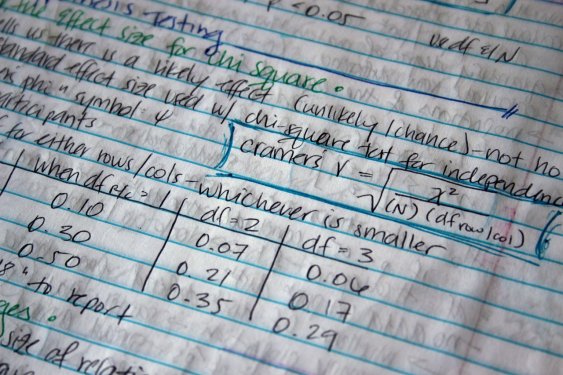 p <0.05
Testing
use df & N
Effect size for chi square.
us there is a likely effect (unlikely/chance) - not
effect size used w/ chi-square test for independence
"phi" symbol φ
participants
cramers V = √ χ² / (N)(df row/col)
for either rows/cols - whichever is smaller
when df = 1 df = 2 df = 3
0.10 0.07 0.06
0.30 0.21 0.17
0.50 0.35 0.29
to report
size of